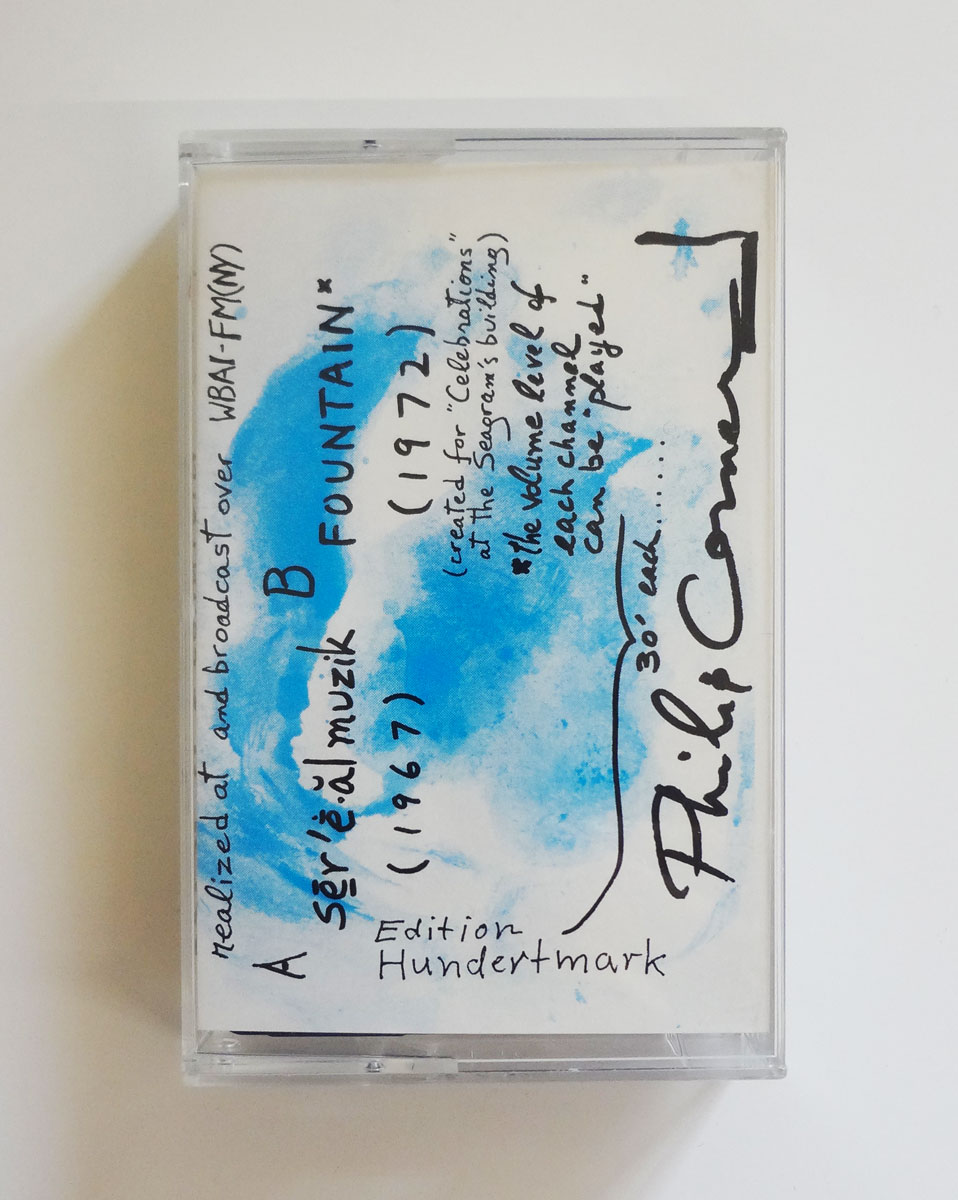 realized at and broadcast over WBAI-FM(NY)
A
sēr′ē·ăl muzik
(1967)
B
FOUNTAIN*
(1972)
(created for "Celebrations"
at the Seagram's building)
*the volume level of
each channel
can be "played"
30' each......
Philip Corner
Edition
Hundertmark